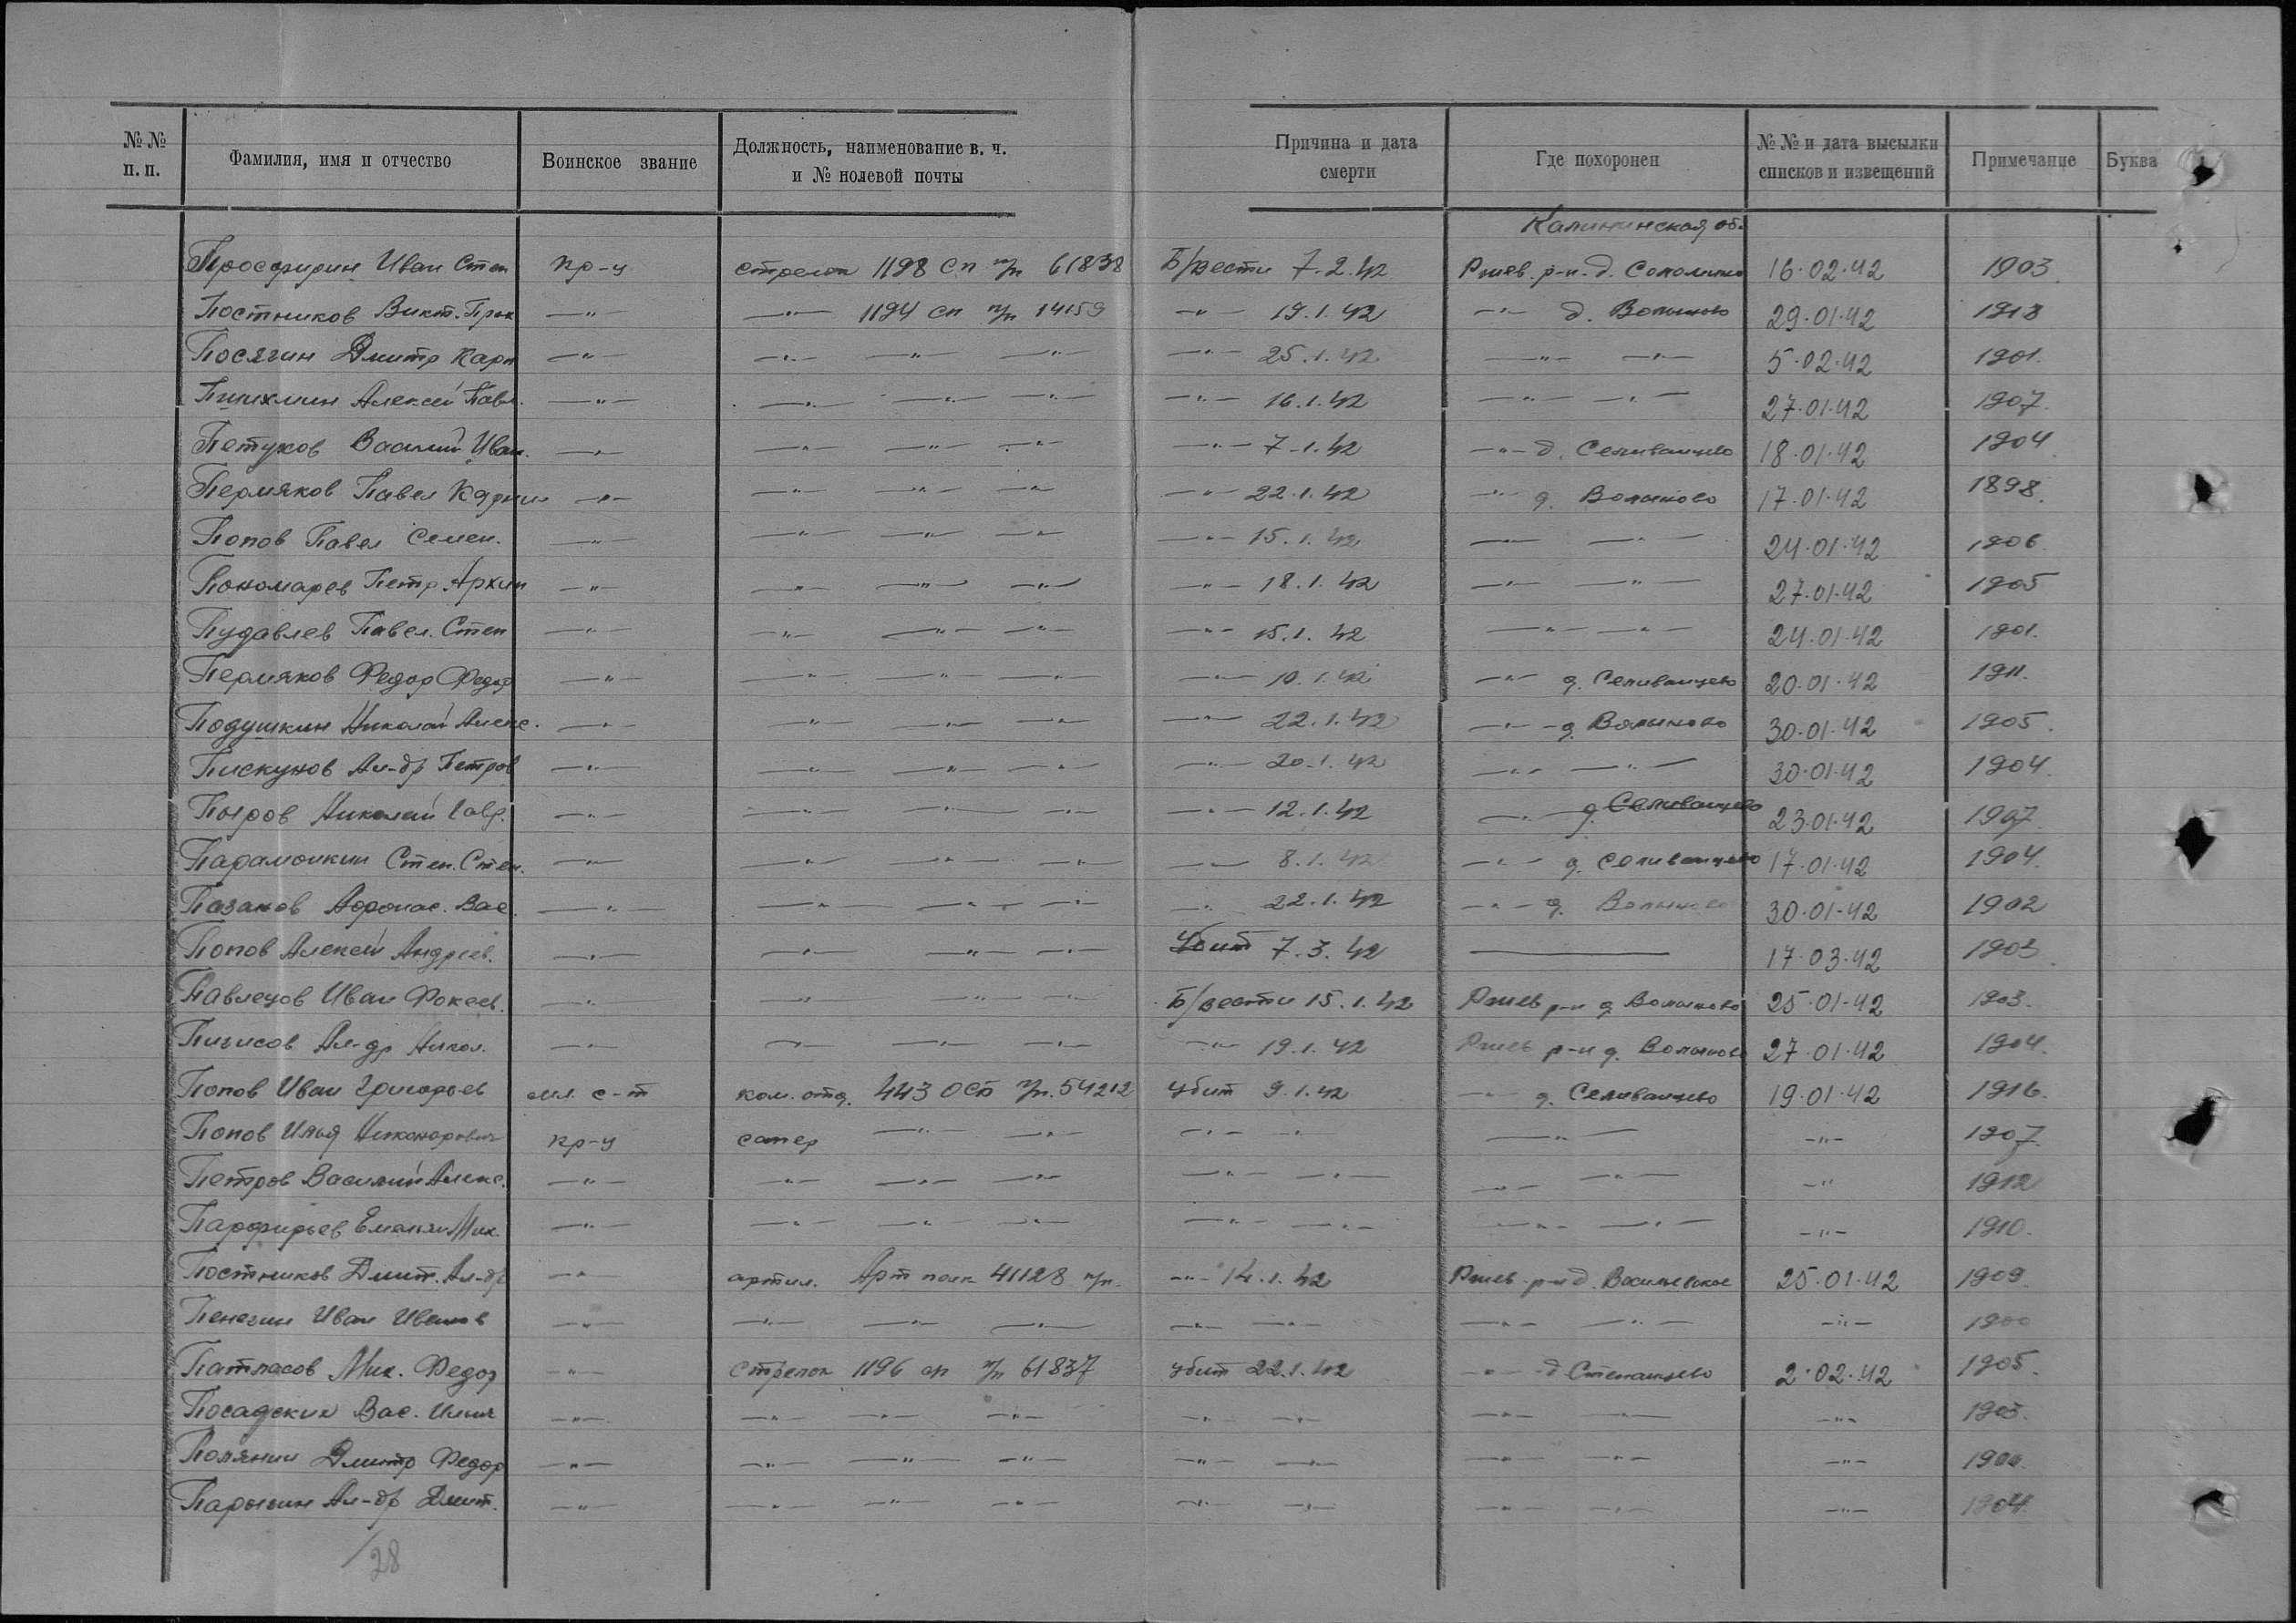 № № п. п. Фамилия, имя и отчество Воинское звание Должность, наименование в. ч. и № полевой почты Причина и дата смерти Где похоронен № № и дата высылки списков и извещений Примечание Буква
Калининская об.
Просфирин Иван Степ кр-ц стрелок 1198 сп п/п 61838 Б/вести 7.2.42 Ржев. р-н. д. 16.02.42 1903
Постников Викт. Прок —"— —"— 1194 сп п/п 14159 —"— 19.1.42 —"— д. Волыново 29.01.42 1918
Посягин Дмитр Карп —"— —"— —"— —"— —"— 25.1.42 —"— —"— 5.02.42 1901.
Алексей Павл. —"— —"— —"— —"— —"— 16.1.42 —"— —"— 27.01.42 1907.
Петухов Василий Иван. —"— —"— —"— —"— —"— 7.1.42 —"— д. Селиванцево 18.01.42 1904
Пермяков Павел —"— —"— —"— —"— —"— 22.1.42 —"— д. Волыново 17.01.42 1898.
Попов Павел Семен. —"— —"— —"— —"— —"— 15.1.42 —"— —"— 24.01.42 1906
Пономарев Петр. Архип —"— —"— —"— —"— —"— 18.1.42 —"— —"— 27.01.42 1905
Пудавлев Павел. Степ —"— —"— —"— —"— —"— 15.1.42 —"— —"— 24.01.42 1901.
Пермяков Федор Федор —"— —"— —"— —"— —"— 10.1.42 —"— д. Селиванцево 20.01.42 1911.
Подушкин Николай Алекс. —"— —"— —"— —"— —"— 22.1.42 —"— д. Волыново 30.01.42 1905.
Пискунов Ал-др Петров —"— —"— —"— —"— —"— 20.1.42 —"— —"— 30.01.42 1904.
Пыров Николай Гавр. —"— —"— —"— —"— —"— 12.1.42 —"— д. Селиванцево 23.01.42 1907
Парамошкин Степ. Степ. —"— —"— —"— —"— —"— 8.1.42 —"— д. Селиванцево 17.01.42 1904.
Пазанов Афонас. Вас. —"— —"— —"— —"— —"— 22.1.42 —"— д. Волыново 30.01.42 1902
Попов Алексей Андреев. —"— —"— —"— —"— Убит 7.3.42 — 17.03.42 1903
Павлецов Иван Фокеев. —"— —"— —"— —"— Б/вести 15.1.42 Ржев р-н д. Волыново 25.01.42 1903.
Ал-др Никол. —"— —"— —"— —"— —"— 19.1.42 Ржев р-н д. Волыново 27.01.42 1904.
Попов Иван Григорьев мл. с-т ком. отд. 443 ОСБ п/п. 54212 убит 9.1.42 —"— д. Селиванцево 19.01.42 1916.
Попов Илья Никонорович кр-ц сапер —"— —"— —"— —"— —"— —"— 1907.
Петров Василий Алекс. —"— —"— —"— —"— —"— —"— —"— —"— —"— 1912
Парфирьев Емельян Мих. —"— —"— —"— —"— —"— —"— —"— —"— —"— 1910.
Постников Дмит. Ал-др —"— артил. Арт полк 41128 п/п. —"— 14.1.42 Ржев. р-н д. Васильевское 25.01.42 1909.
Иван Иванов —"— —"— —"— —"— —"— —"— —"— —"— —"— 1900
Патласов Мих. Федор —"— стрелок 1196 сп п/п 61837 убит 22.1.42 —"— д Степанцево 2.02.42 1905.
Посадских Вас. Ильич —"— —"— —"— —"— —"— —"— —"— — —"— 1903.
Полянин Дмитр Федор —"— —"— —"— —"— —"— —"— —"— —"— —"—
Парыгин Ал-др Дмит. —"— —"— —"— —"— —"— —"— —"— —"— —"— 1904.
28